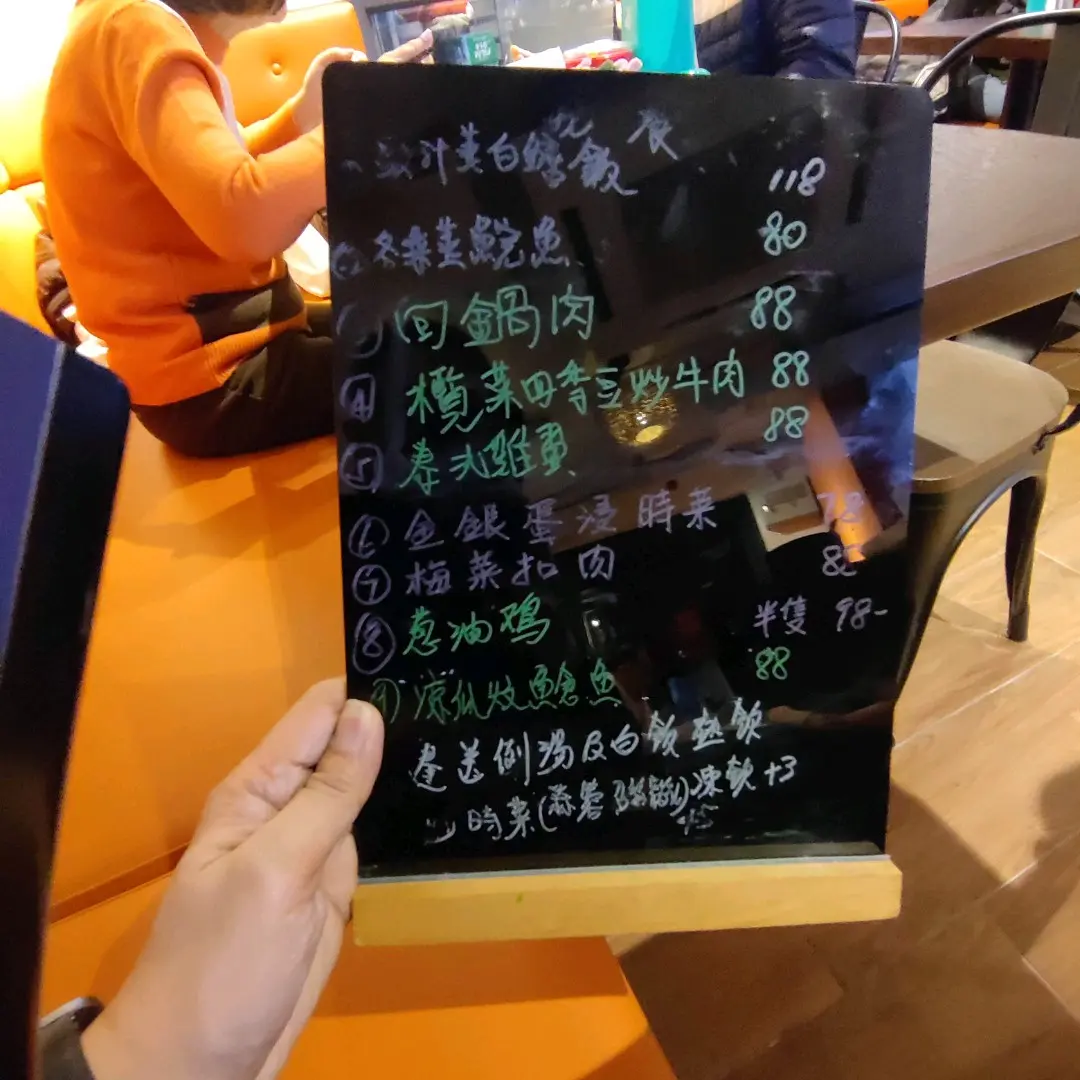 汁蒸白鱔飯 118
② 冬菜蒸鯇魚 80
回鍋肉 88
④ 欖菜四季豆炒牛肉 88
⑤ 88
⑥ 金銀蛋浸時菜 78
⑦ 梅菜扣肉
⑧ 葱油鸡 半隻 98-
⑨ 凉瓜炆鯰魚 88
送例湯及白飯熱飲
時菜(蒜蓉)凍飲+3